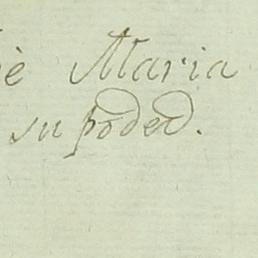 è Maria
su poded.